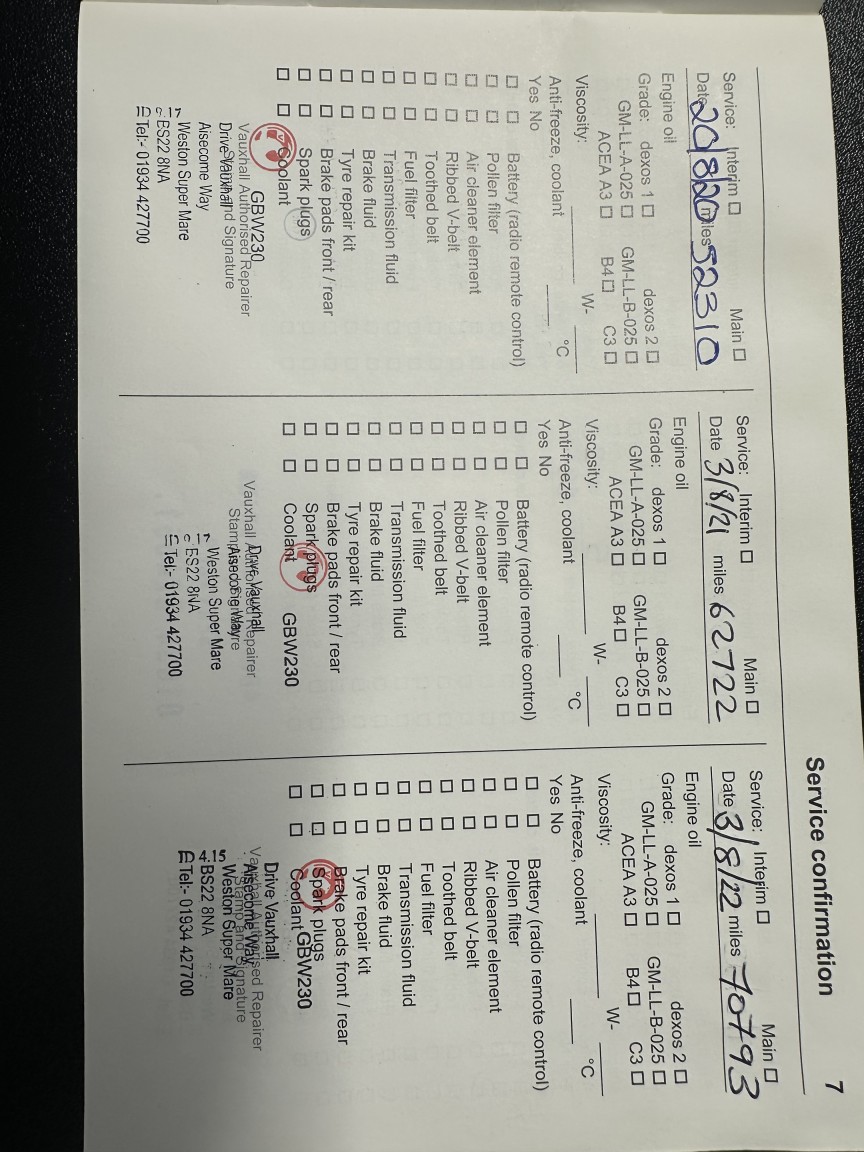 Service confirmation
7
Service: Interim □ Main □
Date 20/8/20 miles 52310
Engine oil
Grade: dexos 1 □ dexos 2 □
GM-LL-A-025 □ GM-LL-B-025 □
ACEA A3 □ B4 □ C3 □
Viscosity: W-
Anti-freeze, coolant °C
Yes No
□ □ Battery (radio remote control)
□ □ Pollen filter
□ □ Air cleaner element
□ □ Ribbed V-belt
□ □ Toothed belt
□ □ Fuel filter
□ □ Transmission fluid
□ □ Brake fluid
□ □ Tyre repair kit
□ □ Brake pads front / rear
□ □ Spark plugs
□ □ Coolant
GBW230
Vauxhall Authorised Repairer
Stamp and Signature
Drive Vauxhall
Aisecome Way
Weston Super Mare
BS22 8NA
Tel:- 01934 427700
Service: Interim □ Main □
Date 3/8/21 miles 62722
Engine oil
Grade: dexos 1 □ dexos 2 □
GM-LL-A-025 □ GM-LL-B-025 □
ACEA A3 □ B4 □ C3 □
Viscosity: W-
Anti-freeze, coolant °C
Yes No
□ □ Battery (radio remote control)
□ □ Pollen filter
□ □ Air cleaner element
□ □ Ribbed V-belt
□ □ Toothed belt
□ □ Fuel filter
□ □ Transmission fluid
□ □ Brake fluid
□ □ Tyre repair kit
□ □ Brake pads front / rear
□ □ Spark plugs
□ □ Coolant
GBW230
Vauxhall Authorised Repairer
Stamp and Signature
Drive Vauxhall
Aisecome Way
Weston Super Mare
BS22 8NA
Tel:- 01934 427700
Service: Interim □ Main □
Date 3/8/22 miles 70793
Engine oil
Grade: dexos 1 □ dexos 2 □
GM-LL-A-025 □ GM-LL-B-025 □
ACEA A3 □ B4 □ C3 □
Viscosity: W-
Anti-freeze, coolant °C
Yes No
□ □ Battery (radio remote control)
□ □ Pollen filter
□ □ Air cleaner element
□ □ Ribbed V-belt
□ □ Toothed belt
□ □ Fuel filter
□ □ Transmission fluid
□ □ Brake fluid
□ □ Tyre repair kit
□ □ Brake pads front / rear
□ □ Spark plugs
□ □ Coolant
GBW230
Drive Vauxhall
Vauxhall Authorised Repairer
Aisecome Way
Stamp and Signature
Weston Super Mare
4.15 BS22 8NA
Tel:- 01934 427700